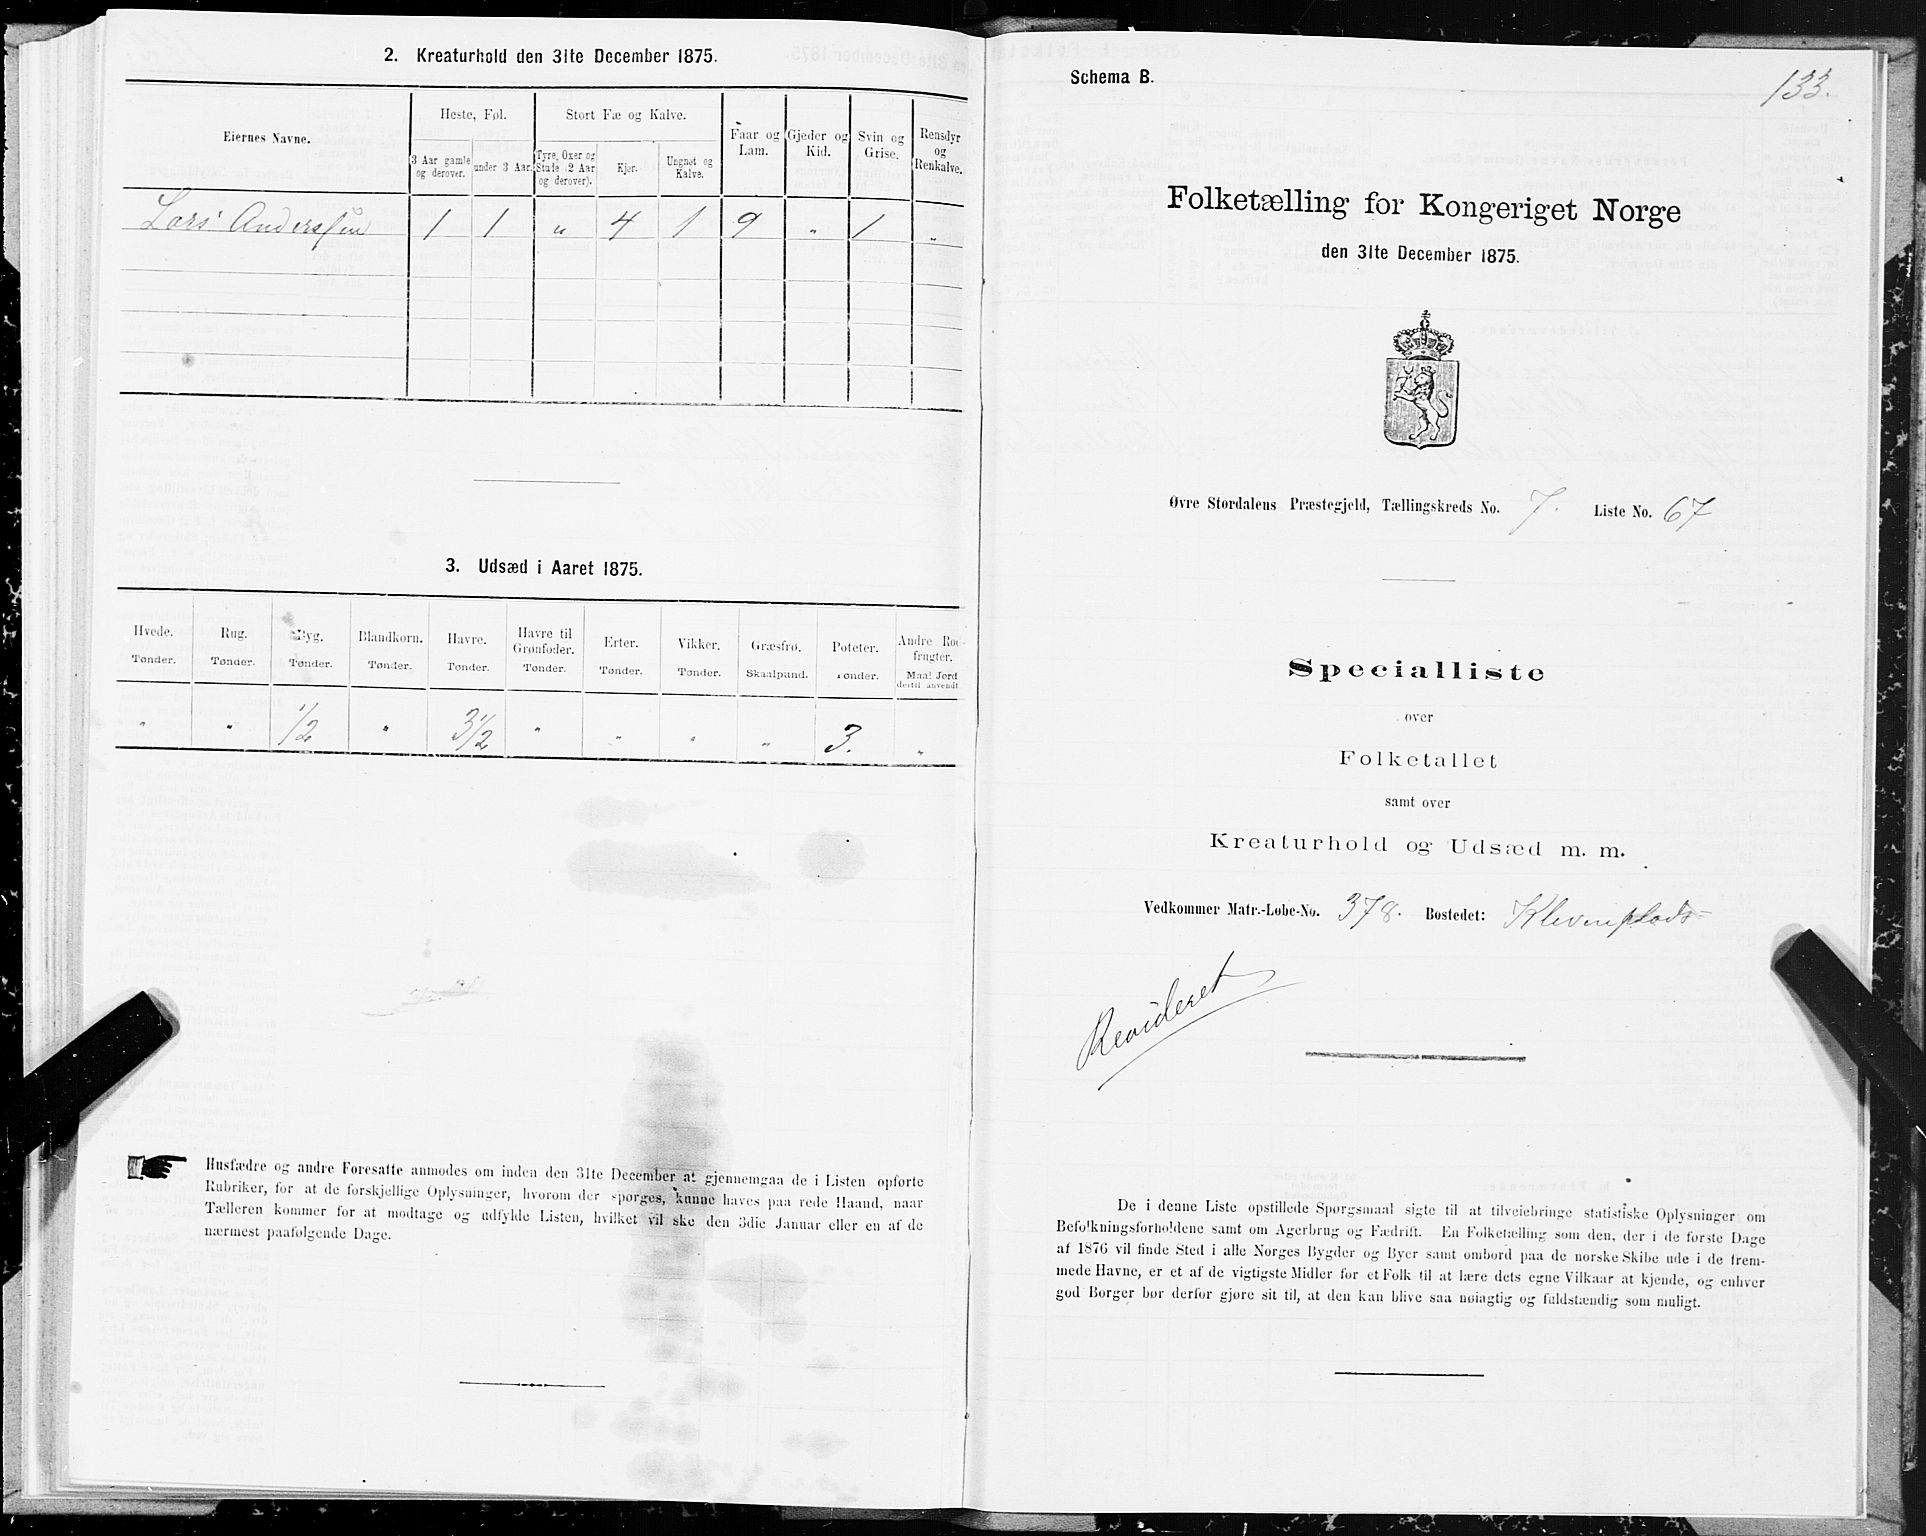 2. Kreaturhold den 31te December 1875.
Eiernes Navne.
Heste, Føl.
Stort Fæ og Kalve.
Faar og Lam.
Gjeder og Kid.
Svin og Grise.
Rensdyr og Renkalve.
3 Aar gamle og derover.
under 3 Aar.
Tyre, Oxer og Stude (2 Aar og derover).
Kjør.
Ungnøt og Kalve.
Lars Anderssen 1 1 " 4 1 9 " 1 "
3. Udsæd i Aaret 1875.
Hvede. Rug. Byg. Blandkorn. Havre. Havre til Grønfoder. Erter. Vikker. Græsfrø. Poteter. Andre Rodfrugter.
Tønder. Tønder. Tønder. Tønder. Tønder. Tønder. Tønder. Tønder. Skaalpund. Tønder. Maal Jord dertil anvendt.
" " 1/2 " 3 1/2 " " " " 3. "
Husfædre og andre Foresatte anmodes om inden den 31te December at gjennemgaa de i Listen opførte
Rubriker, for at de forskjellige Oplysninger, hvorom der spørges, kunne haves paa rede Haand, naar
Tælleren kommer for at modtage og udfylde Listen, hvilket vil ske den 3die Januar eller en af de
nærmest paafølgende Dage.
Schema B.
133.
Folketælling for Kongeriget Norge
den 31te December 1875.
Øvre Størdalens Præstegjeld, Tællingskreds No. 7. Liste No. 67
Specialliste
over
Folketallet
samt over
Kreaturhold og Udsæd m. m.
Vedkommer Matr.-Løbe-No. 378. Bostedet: Klevenplads
Revideret
De i denne Liste opstillede Spørgsmaal sigte til at tilveiebringe statistiske Oplysninger om
Befolkningsforholdene samt om Agerbrug og Fædrift. En Folketælling som den, der i de første Dage
af 1876 vil finde Sted i alle Norges Bygder og Byer samt ombord paa de norske Skibe ude i de frem-
mede Havne, er et af de vigtigste Midler for et Folk til at lære dets egne Vilkaar at kjende, og enhver
god Borger bør derfor gjøre sit til, at den kan blive saa nøiagtig og fuldstændig som muligt.